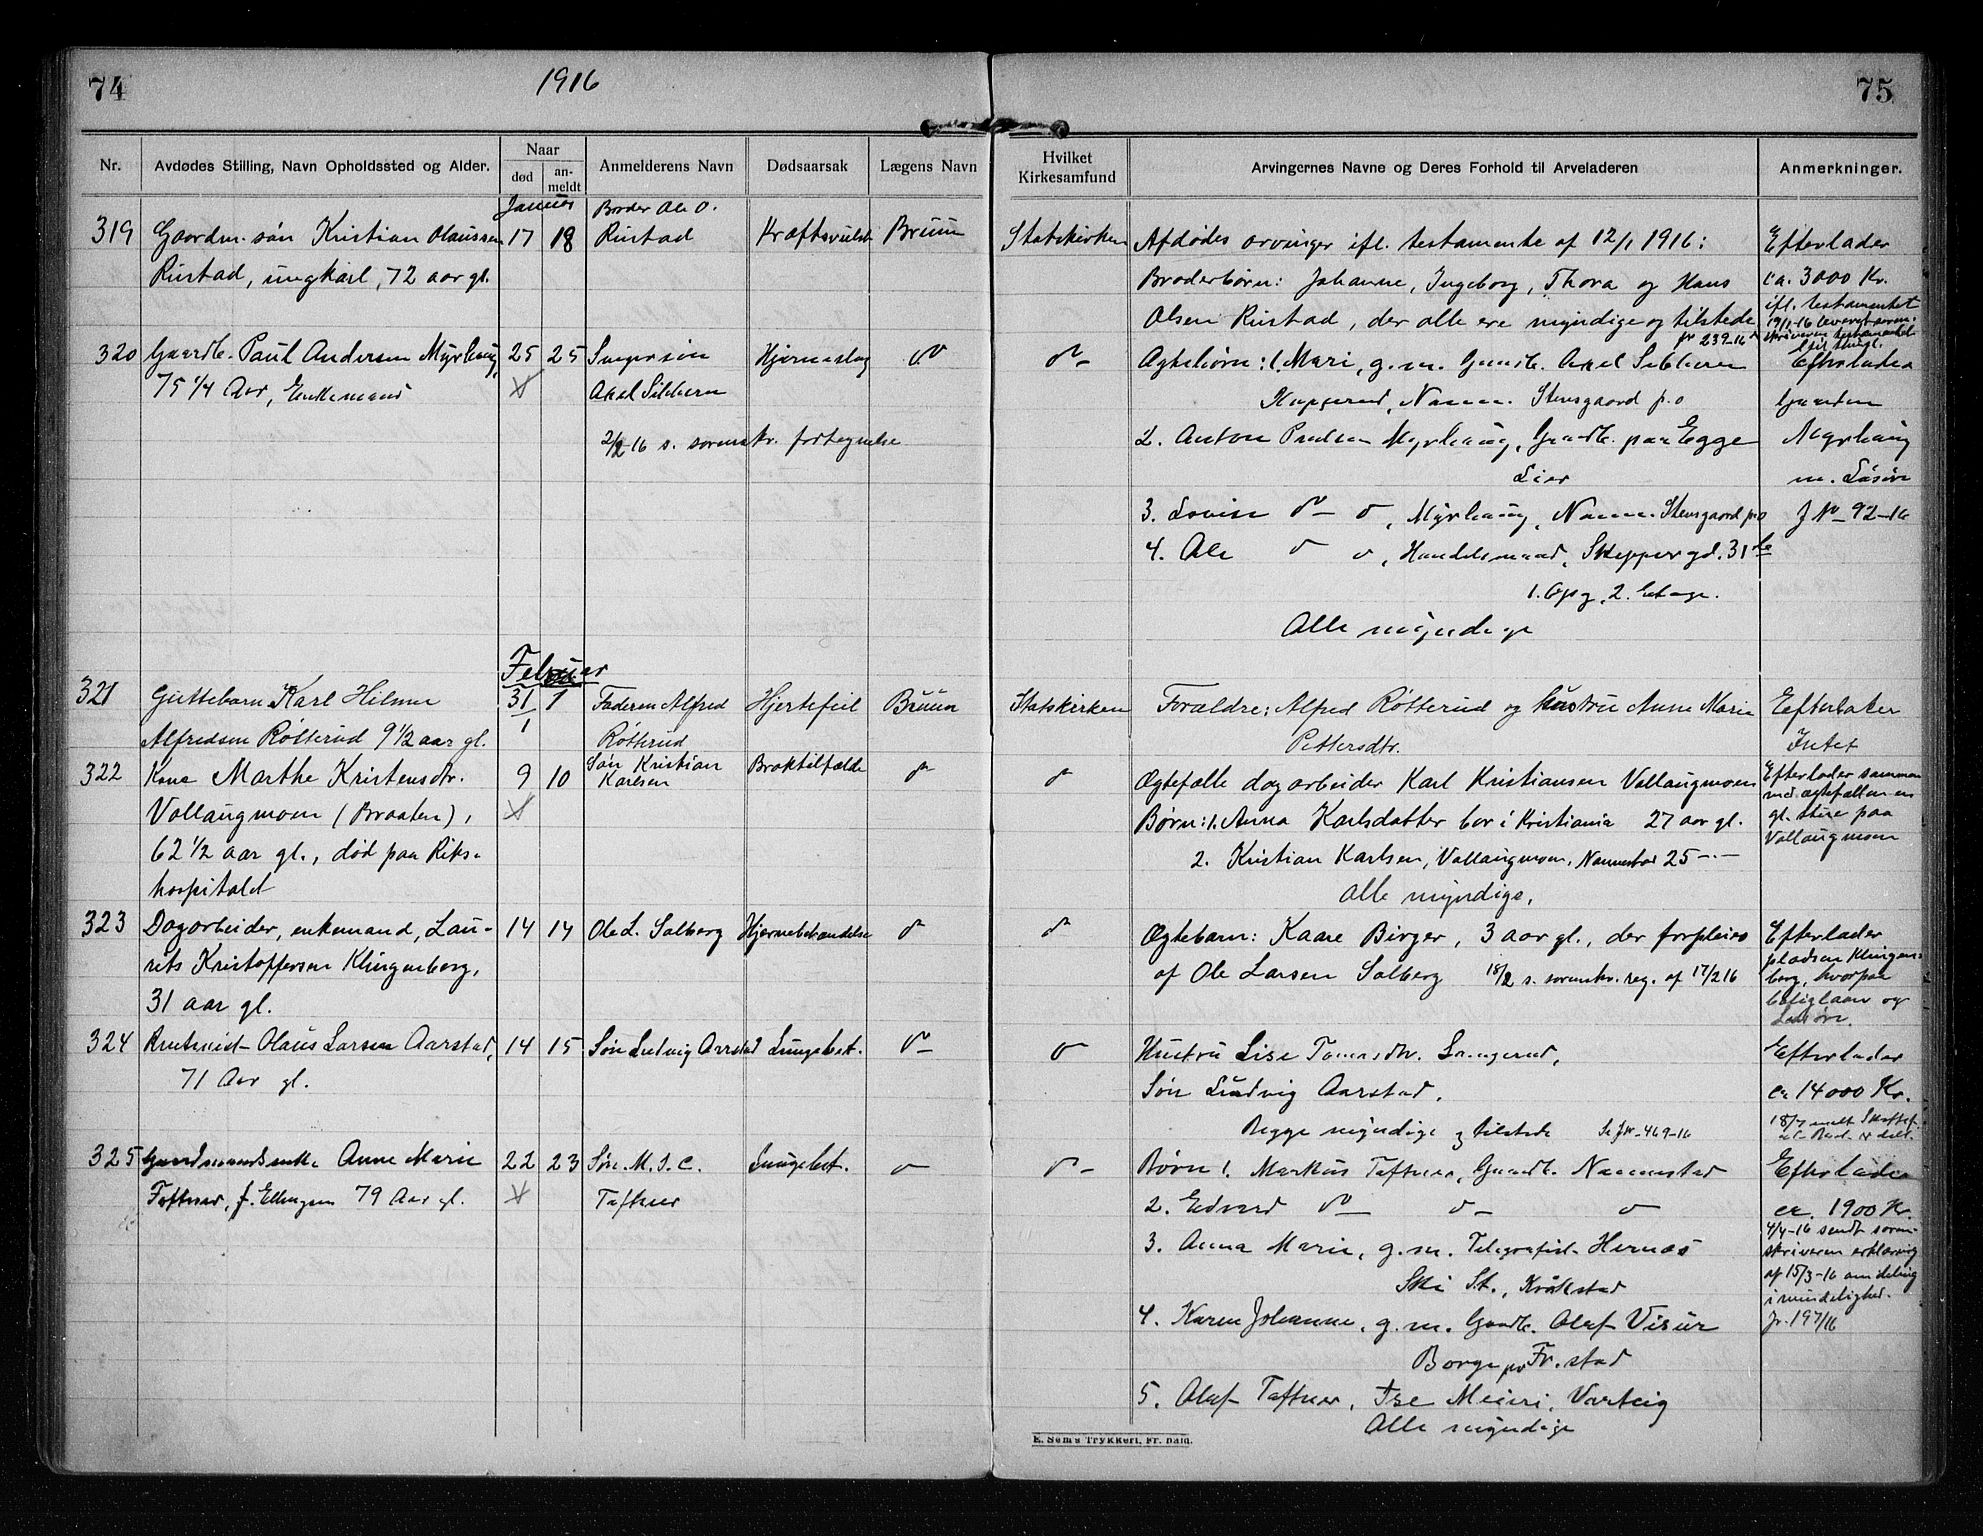 74
1916
75
Nr. Avdødes Stilling, Navn Opholdssted og Alder. Naar død an-meldt Anmelderens Navn Dødsaarsak Lægens Navn Hvilket Kirkesamfund Arvingernes Navne og Deres Forhold til Arveladeren Anmerkninger.
Januar
319 Gaardm. søn Kristian Olaussen 17 18 Broder Ole O. Kræftsvulst Bruun Statskirken Afdødes arvinger ifl. testamente af 12/1 1916: Efterlader
Rustad, ungkarl, 72 aar gl. Rustad Broderbørn: Johanne, Ingeborg, Thora og Hans ca. 3000 Kr.
Olsen Rustad, der alle ere myndige og tilstede ifl. testamentet
jr 239-16
320 Gaardb. Paul Andersen Myrhaug, 25 25 Svigersøn Hjerneslag do do- Ægtebørn: 1. Mari, g. m. Gaardb. Axel Sibbern Efterlader
75 1/4 Aar, Enkemand Axel Sibbern Nann. Stensgaard p.o Gaarden
2/2-16 s. sorenskr. fortegnelse 2. Anton Paulsen Myrhaug, Gaardb. paa Egge Myrhaug
Lier m. Løsøre
3. Lovise do- o, Myrhaug, Nann. Stensgaard p.o J No- 92-16
4. Ole o o, Handelsmand, Skippergd. 31
1. Opg, 2. Etage.
Alle myndige
Februar
321 Guttebarn Karl Hilmar 31/1 1 Faderen Alfred Hjertefeil Bruun Statskirken Forældre: Alfred Røtterud og hustru Anne Marie Efterlater
Alfredsen Røtterud 9 1/2 aar gl. Røtterud Pettersdtr. Intet
322 Kone Marthe Kristensdtr. 9 10 Søn Kristian Karlsen Broktilfælde do do Ægtefælle dagarbeider Karl Kristiansen Vollaugmoen Efterlader sammen
Vollaugmoen (Braaten), Børn: 1. Anna Karlsdatter bor i Kristiania 27 aar gl. med ægtefællen en
62 1/2 aar gl., død paa Riks- 2. Kristian Karlsen, Vollaugmoen, Nannestad 25 -"- gl. stue paa
hospitalet Alle myndige, Vollaugmoen
323 Dagarbeider, enkemand, Lau- 14 14 Ole L. Solberg Hjernebetændelse do do Ægtebarn: Kaare Birger, 3 aar gl., der forpleies Efterlader
rits Kristoffersen Klingenberg, af Ole Larsen Solberg 18/2 s. sorenskr. reg. af 17/2 16 pladsen Klingen-
31 aar gl. berg, hvorpaa
og
Løsøre.
324 Olaus Larsen Aarstad, 14 15 Søn Ludvig Aarstad Lungebet. do- o Hustru Lise Tomasdtr. Efterlader
71 Aar gl. Søn Ludvig Aarstad, ca 14000 Kr.
Begge myndige og tilstede Se J No-469-16
325 Gaardmandsenke Anne Marie 22 23 Søn M. J. C. Lungebet. o do- Børn 1. Markus Taftner, Gaardb. Nannestad Efterlader
Taftner, f. Ellingsen 79 Aar gl. Taftner 2. Edvard do- o- o- ca. 1900 Kr.
3. Anna Marie, g. m. Telegrafist Hernæs 4/4-16 sendt soren-
Ski St., Kråkstad skriveren erklæring
af 15/3-16 om deling
i mindelighed.
4. Karen Johanne, g. m. Gaardb. Olaf Visur Jr. 197/16
Borge pr Fr.stad
5. Olaf Taftner, Ise Meieri, Varteig
Alle myndige
E. Sem's Trykkeri, Fr. hald.